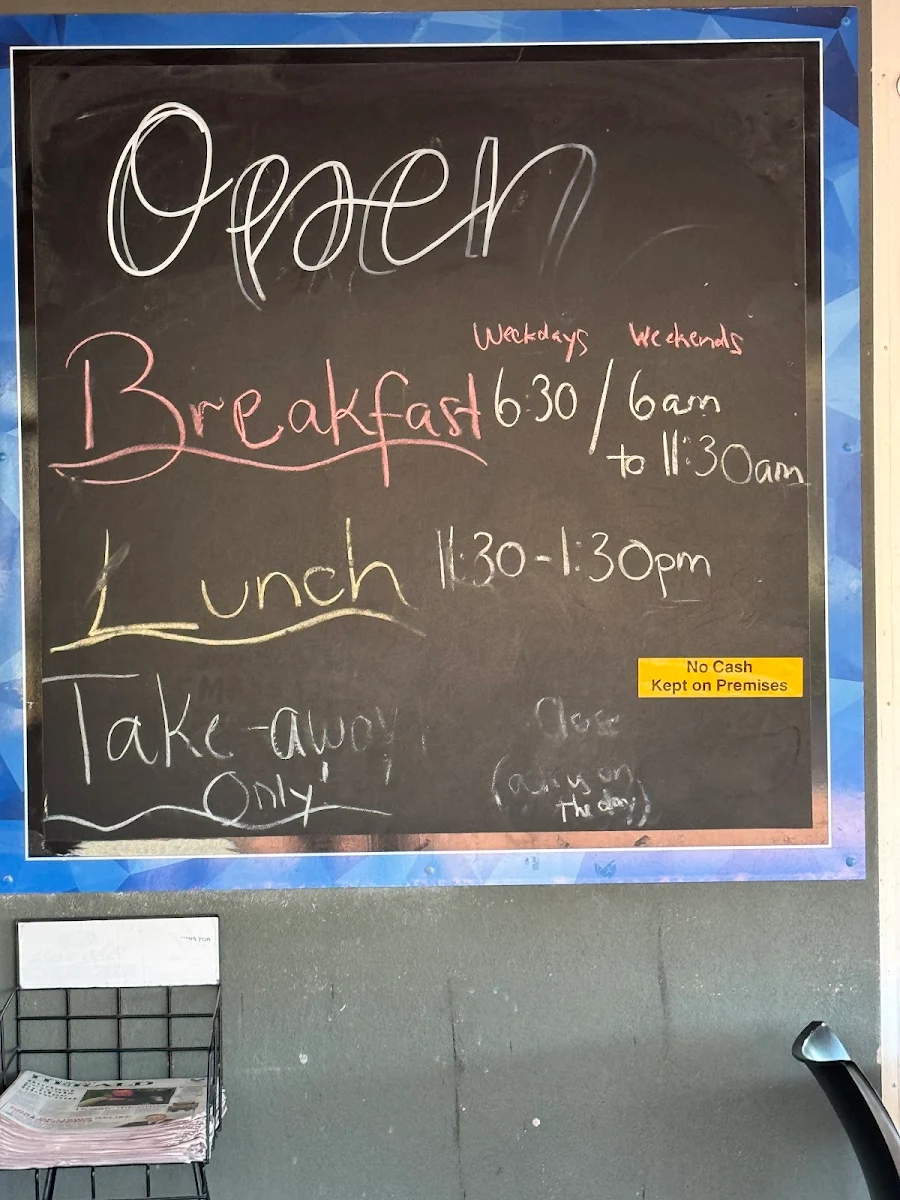 Open
Weekdays Weekends
Breakfast 6:30 / 6am
to 11:30am
Lunch 11:30-1:30pm
No Cash
Kept on Premises
Take-away
Only!
The day)
HERALD